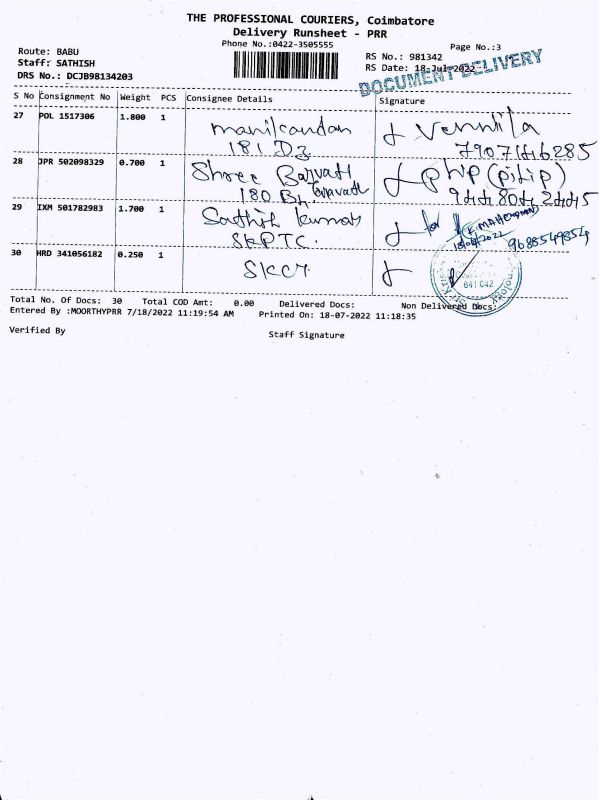 THE PROFESSIONAL COURIERS, Coimbatore
Delivery Runsheet - PRR
Phone No.:0422-3505555
Page No.:3
Route: BABU
RS No.: 981342
Staff: SATHISH
RS Date: 18-Jul-2022
DRS No.: DCJB98134203
DOCUMENT DELIVERY
S No Consignment No Weight PCS Consignee Details Signature
27 POL 1517306 1.800 1 manikandan
181 D2
28 JPR 502098329 0.700 1 Shree
180
29 IXM 501782983 1.700 1 Sathish Kumar
SKPTC.
for (K. MAHENDRAN)
9688549854
30 HRD 341056182 0.250 1 SKCT
641 042
Total No. Of Docs: 30 Total COD Amt: 0.00 Delivered Docs: Non Delivered Docs:
Entered By :MOORTHYPRR 7/18/2022 11:19:54 AM Printed On: 18-07-2022 11:18:35
Verified By Staff Signature